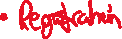 • Registrahin